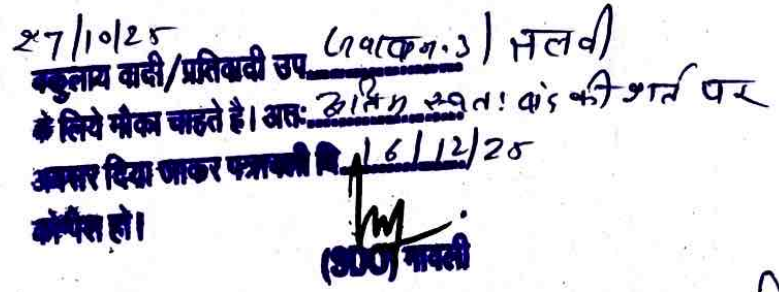 27/10/25
वकुलाय वादी/प्रतिवादी उप........ / तलवी
के लिये मौका चाहते है। अतः अंतिम स्वतः बंद की शर्त पर
अवसर दिया जाकर पत्रावली दि. 16/12/25
को पेश हो।
(SDO) नावली